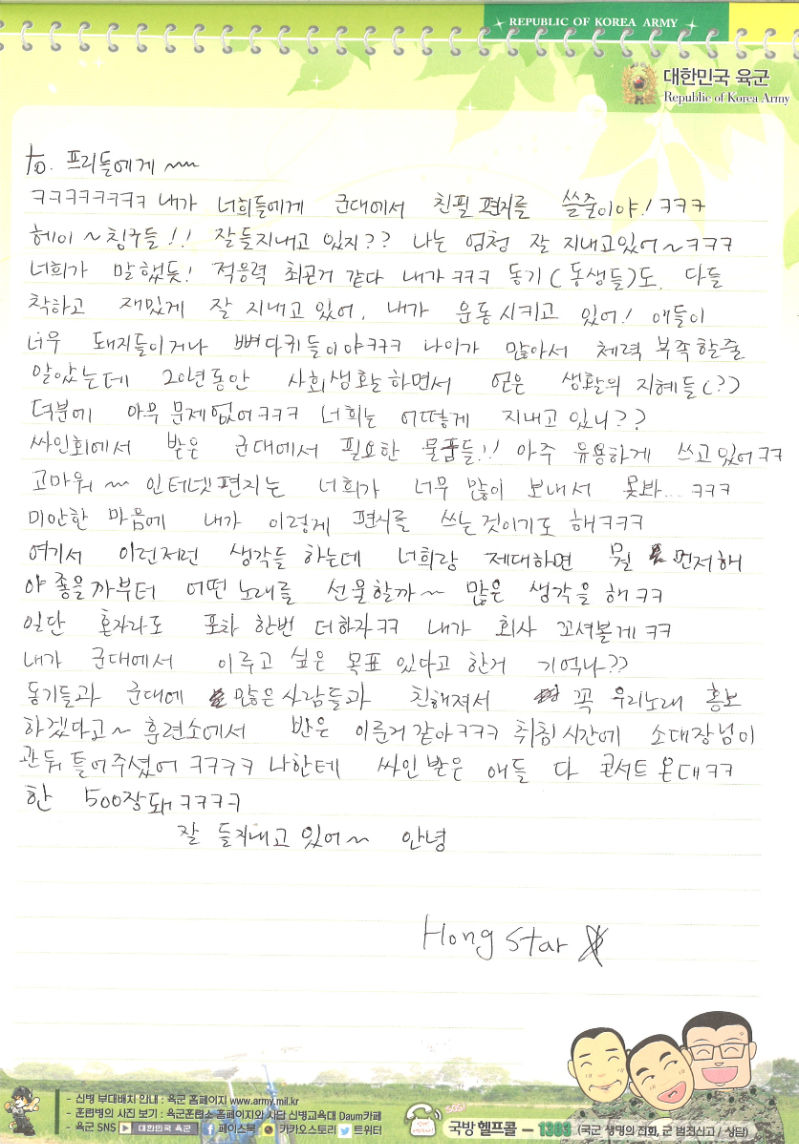 REPUBLIC OF KOREA ARMY
대한민국 육군
Republic of Korea Army
to. 프리들에게 ~~
ㅋㅋㅋㅋㅋㅋㅋㅋ 내가 너희들에게 군대에서 친필 편지를 쓸줄이야! ㅋㅋㅋ
헤이~칭구들!! 잘들지내고 있지?? 나는 엄청 잘 지내고있어~ㅋㅋㅋ
너희가 말했듯! 적응력 최곤거 같다 내가 ㅋㅋㅋ 동기(동생들)도 다들
착하고 재밌게 잘 지내고 있어, 내가 운동시키고 있어! 애들이
너무 돼지들이거나 뼈다귀들이야ㅋㅋㅋ 나이가 많아서 체력 부족할줄
알았는데 20년동안 사회생활하면서 얻은 생활의 지혜들(??)
덕분에 아무 문제없어ㅋㅋㅋ 너희는 어떻게 지내고 있니??
싸인회에서 받은 군대에서 필요한 물품들!! 아주 유용하게 쓰고있어ㅋㅋ
고마워~~ 인터넷편지는 너희가 너무 많이 보내서 못봐... ㅋㅋㅋ
미안한 마음에 내가 이렇게 편지를 쓰는것이기도 해ㅋㅋㅋ
여기서 이런저런 생각들 하는데 너희랑 제대하면 뭘 먼저해
야 좋을까부터 어떤노래를 선물할까~ 많은 생각을 해ㅋㅋ
일단 혼자라도 포차 한번 더하자ㅋㅋ 내가 회사 꼬셔볼게ㅋㅋ
내가 군대에서 이루고 싶은 목표 있다고 한거 기억나??
동기들과 군대에 많은사람들과 친해져서 꼭 우리노래 홍보
하겠다고~ 훈련소에서 반은 이룬거같아ㅋㅋㅋ 취침시간에 소대장님이
관둬 틀어주셨어 ㅋㅋㅋㅋ 나한테 싸인받은 애들 다 콘서트온대ㅋㅋ
한 500장돼ㅋㅋㅋㅋ
잘 들지내고 있어~ 안녕
Hong Star
- 신병 부대배치 안내 : 육군 홈페이지 www.army.mil.kr
- 훈련병의 사진 보기 : 육군훈련소 홈페이지와 사단 신병교육대 Daum카페
- 육군 SNS 대한민국 육군 페이스북 카카오스토리 트위터
SOS!
국방 헬프콜 - 1303 (국군 생명의 전화, 군 범죄신고 / 상담)